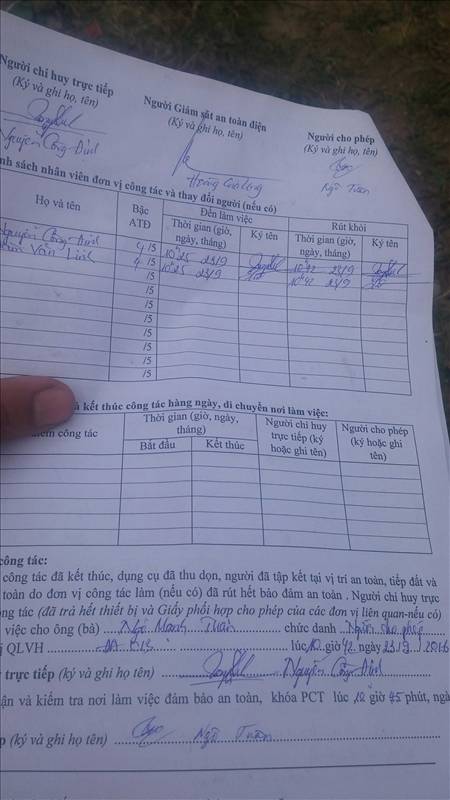 Người chỉ huy trực tiếp Người Giám sát an toàn điện Người cho phép
(Ký và ghi họ, tên) (Ký và ghi họ, tên) (Ký và ghi họ, tên)
Nguyễn Công Đỉnh Ngô Tuân
nh sách nhân viên đơn vị công tác và thay đổi người (nếu có)
Họ và tên Bậc ATĐ Đến làm việc Rút khỏi
Thời gian (giờ, ngày, tháng) Ký tên Thời gian (giờ, ngày, tháng) Ký tên
Nguyễn Công Đỉnh 4/5 10h25 23/9 10h42 23/9
Văn Linh 4/5 10h25 23/9 10h42 23/9
/5
/5
/5
/5
/5
/5
/5
/5
kết thúc công tác hàng ngày, di chuyển nơi làm việc:
điểm công tác Thời gian (giờ, ngày, tháng) Người chỉ huy trực tiếp (ký hoặc ghi tên) Người cho phép (ký hoặc ghi tên)
Bắt đầu Kết thúc
công tác:
công tác đã kết thúc, dụng cụ đã thu dọn, người đã tập kết tại vị trí an toàn, tiếp đất và
toàn do đơn vị công tác làm (nếu có) đã rút hết bảo đảm an toàn . Người chỉ huy trực
ng tác (đã trả hết thiết bị và Giấy phối hợp cho phép của các đơn vị liên quan-nếu có)
việc cho ông (bà) Ngô Mạnh Tuân chức danh Người cho phép
QLVH lúc 10 giờ 42 ngày 23/9/2016
trực tiếp (ký và ghi họ tên) Nguyễn Công Đỉnh
ận và kiểm tra nơi làm việc đảm bảo an toàn, khóa PCT lúc 10 giờ 45 phút, ngà
p (ký và ghi họ tên) Ngô Tuân